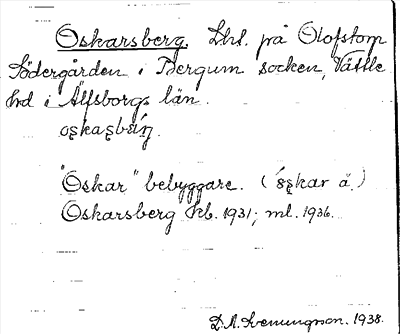 Oskarsberg. Lht. på Olofstorp
Södergården i Bergum socken, Vättle
hd i Älfsborgs län.
"Oskar" bebyggare.
Oskarsberg kb. 1931; ml. 1936.
D. A. Svenungson. 1938.